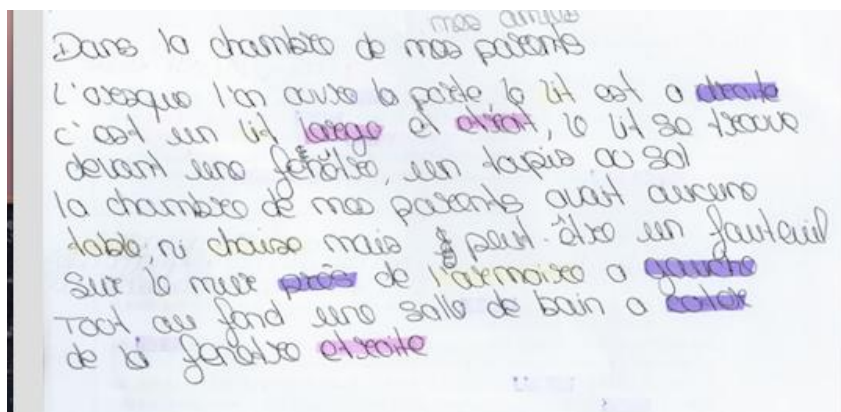 mes amies
Dans la chambre de mes parents
L'oresque l'on ouvre la porte le lit est a droite
c'est un lit large et etroit, le lit se trouve
devant une fenêtre, un tapis au sol
la chambre de mes parents avait aucune
table, ni chaise mais peut-être un fauteuil
Sur le mur près de l'armoire a gauche
Tout au fond une salle de bain a coter
de la fenêtre etroite